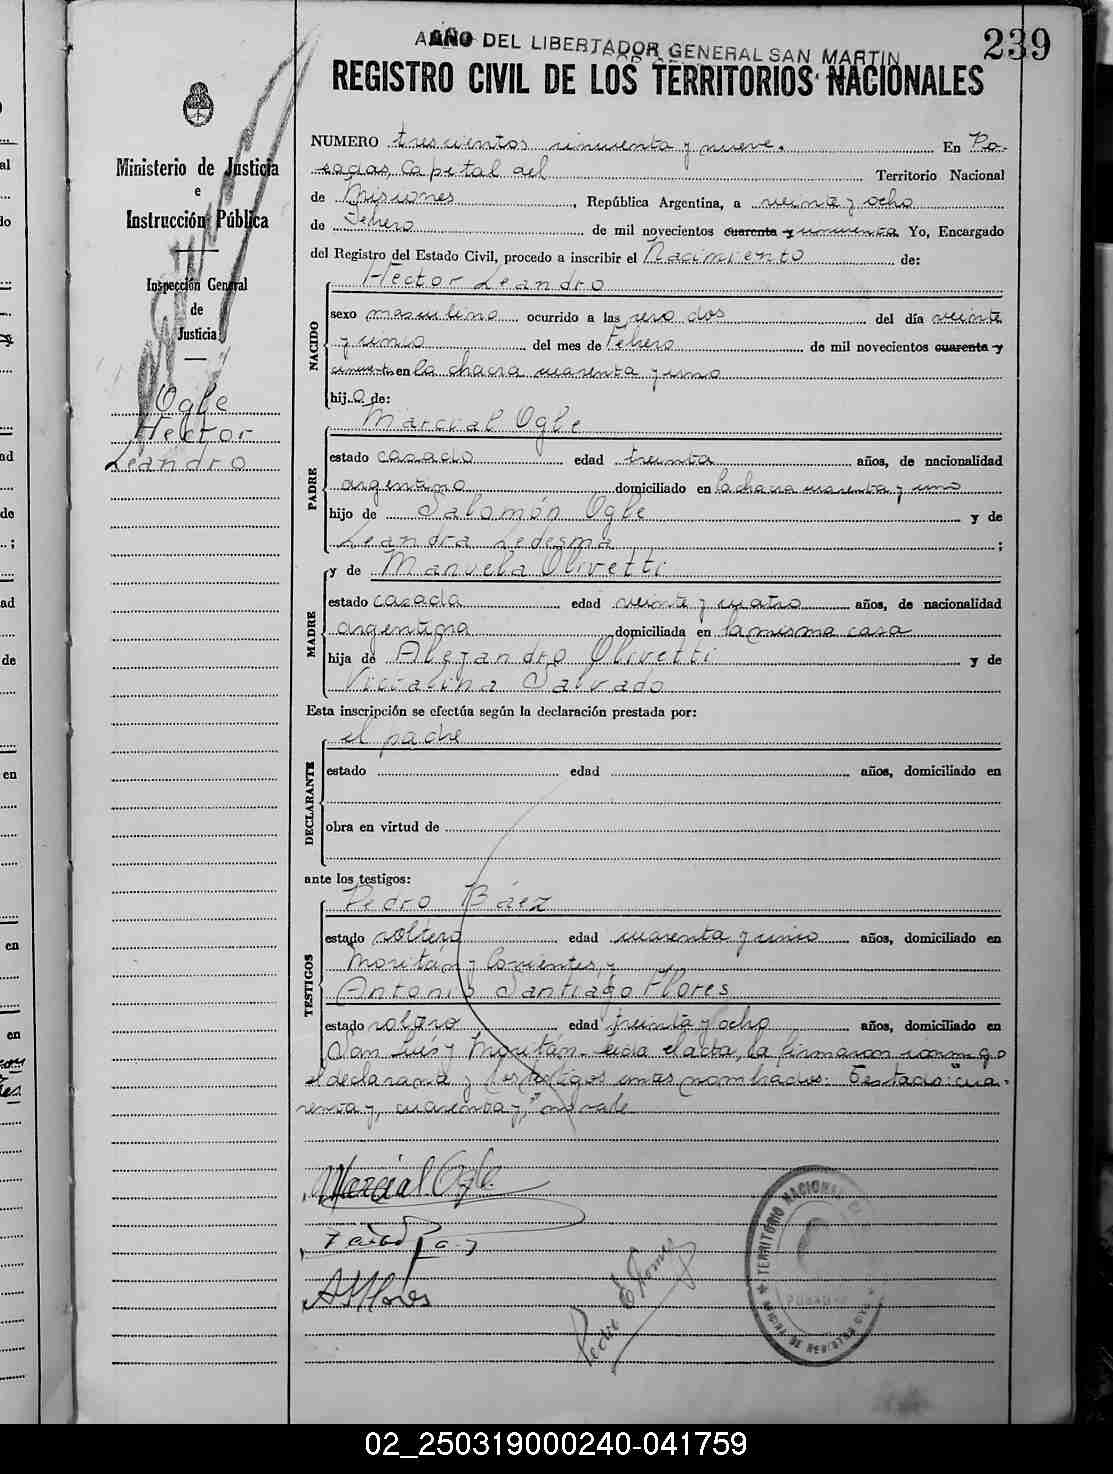 AÑO DEL LIBERTADOR GENERAL SAN MARTIN
239
REGISTRO CIVIL DE LOS TERRITORIOS NACIONALES
Ministerio de Justicia
e
Instrucción Pública
Inspección General
de
Justicia
Ogle
Hector
Leandro
NUMERO trescientos cincuenta y nueve. En Po-
sadas, Capital del Territorio Nacional
de Misiones, República Argentina, a veinte y ocho
de Febrero de mil novecientos cuarenta y cincuenta Yo, Encargado
del Registro del Estado Civil, procedo a inscribir el Nacimiento de:
NACIDO
Hector Leandro
sexo masculino ocurrido a las cero dos del día veinte
y cinco del mes de Febrero de mil novecientos cuarenta y
cincuenta en la chacra cuarenta y uno
hijo de:
PADRE
Marcial Ogle
estado casado edad treinta años, de nacionalidad
argentino domiciliado en la chacra cuarenta y uno
hijo de Salomón Ogle y de
Leandra Ledesma ;
MADRE
y de Manuela Olivetti
estado casada edad veinte y cuatro años, de nacionalidad
argentina domiciliada en la misma casa
hija de Alejandro Olivetti y de
Victalina Salvado
Esta inscripción se efectúa según la declaración prestada por:
DECLARANTE
el padre
estado edad años, domiciliado en
obra en virtud de
ante los testigos:
TESTIGOS
Pedro Báez
estado soltero edad cuarenta y cinco años, domiciliado en
Moritán y Corrientes, y
Antonio Santiago Flores
estado soltero edad treinta y ocho años, domiciliado en
San Luis y Moritán. Leida el acta, la firmaron conmigo
el declarante y los testigos antes nombrados. Testado: "cua-
renta y, cuarenta y," no vale
Marcial Ogle
A S Flores
Pedro E Thomes
TERRITORIO NACIONAL DE
POSADAS
OFICINA DE REGISTRO CIVIL
02_250319000240-041759